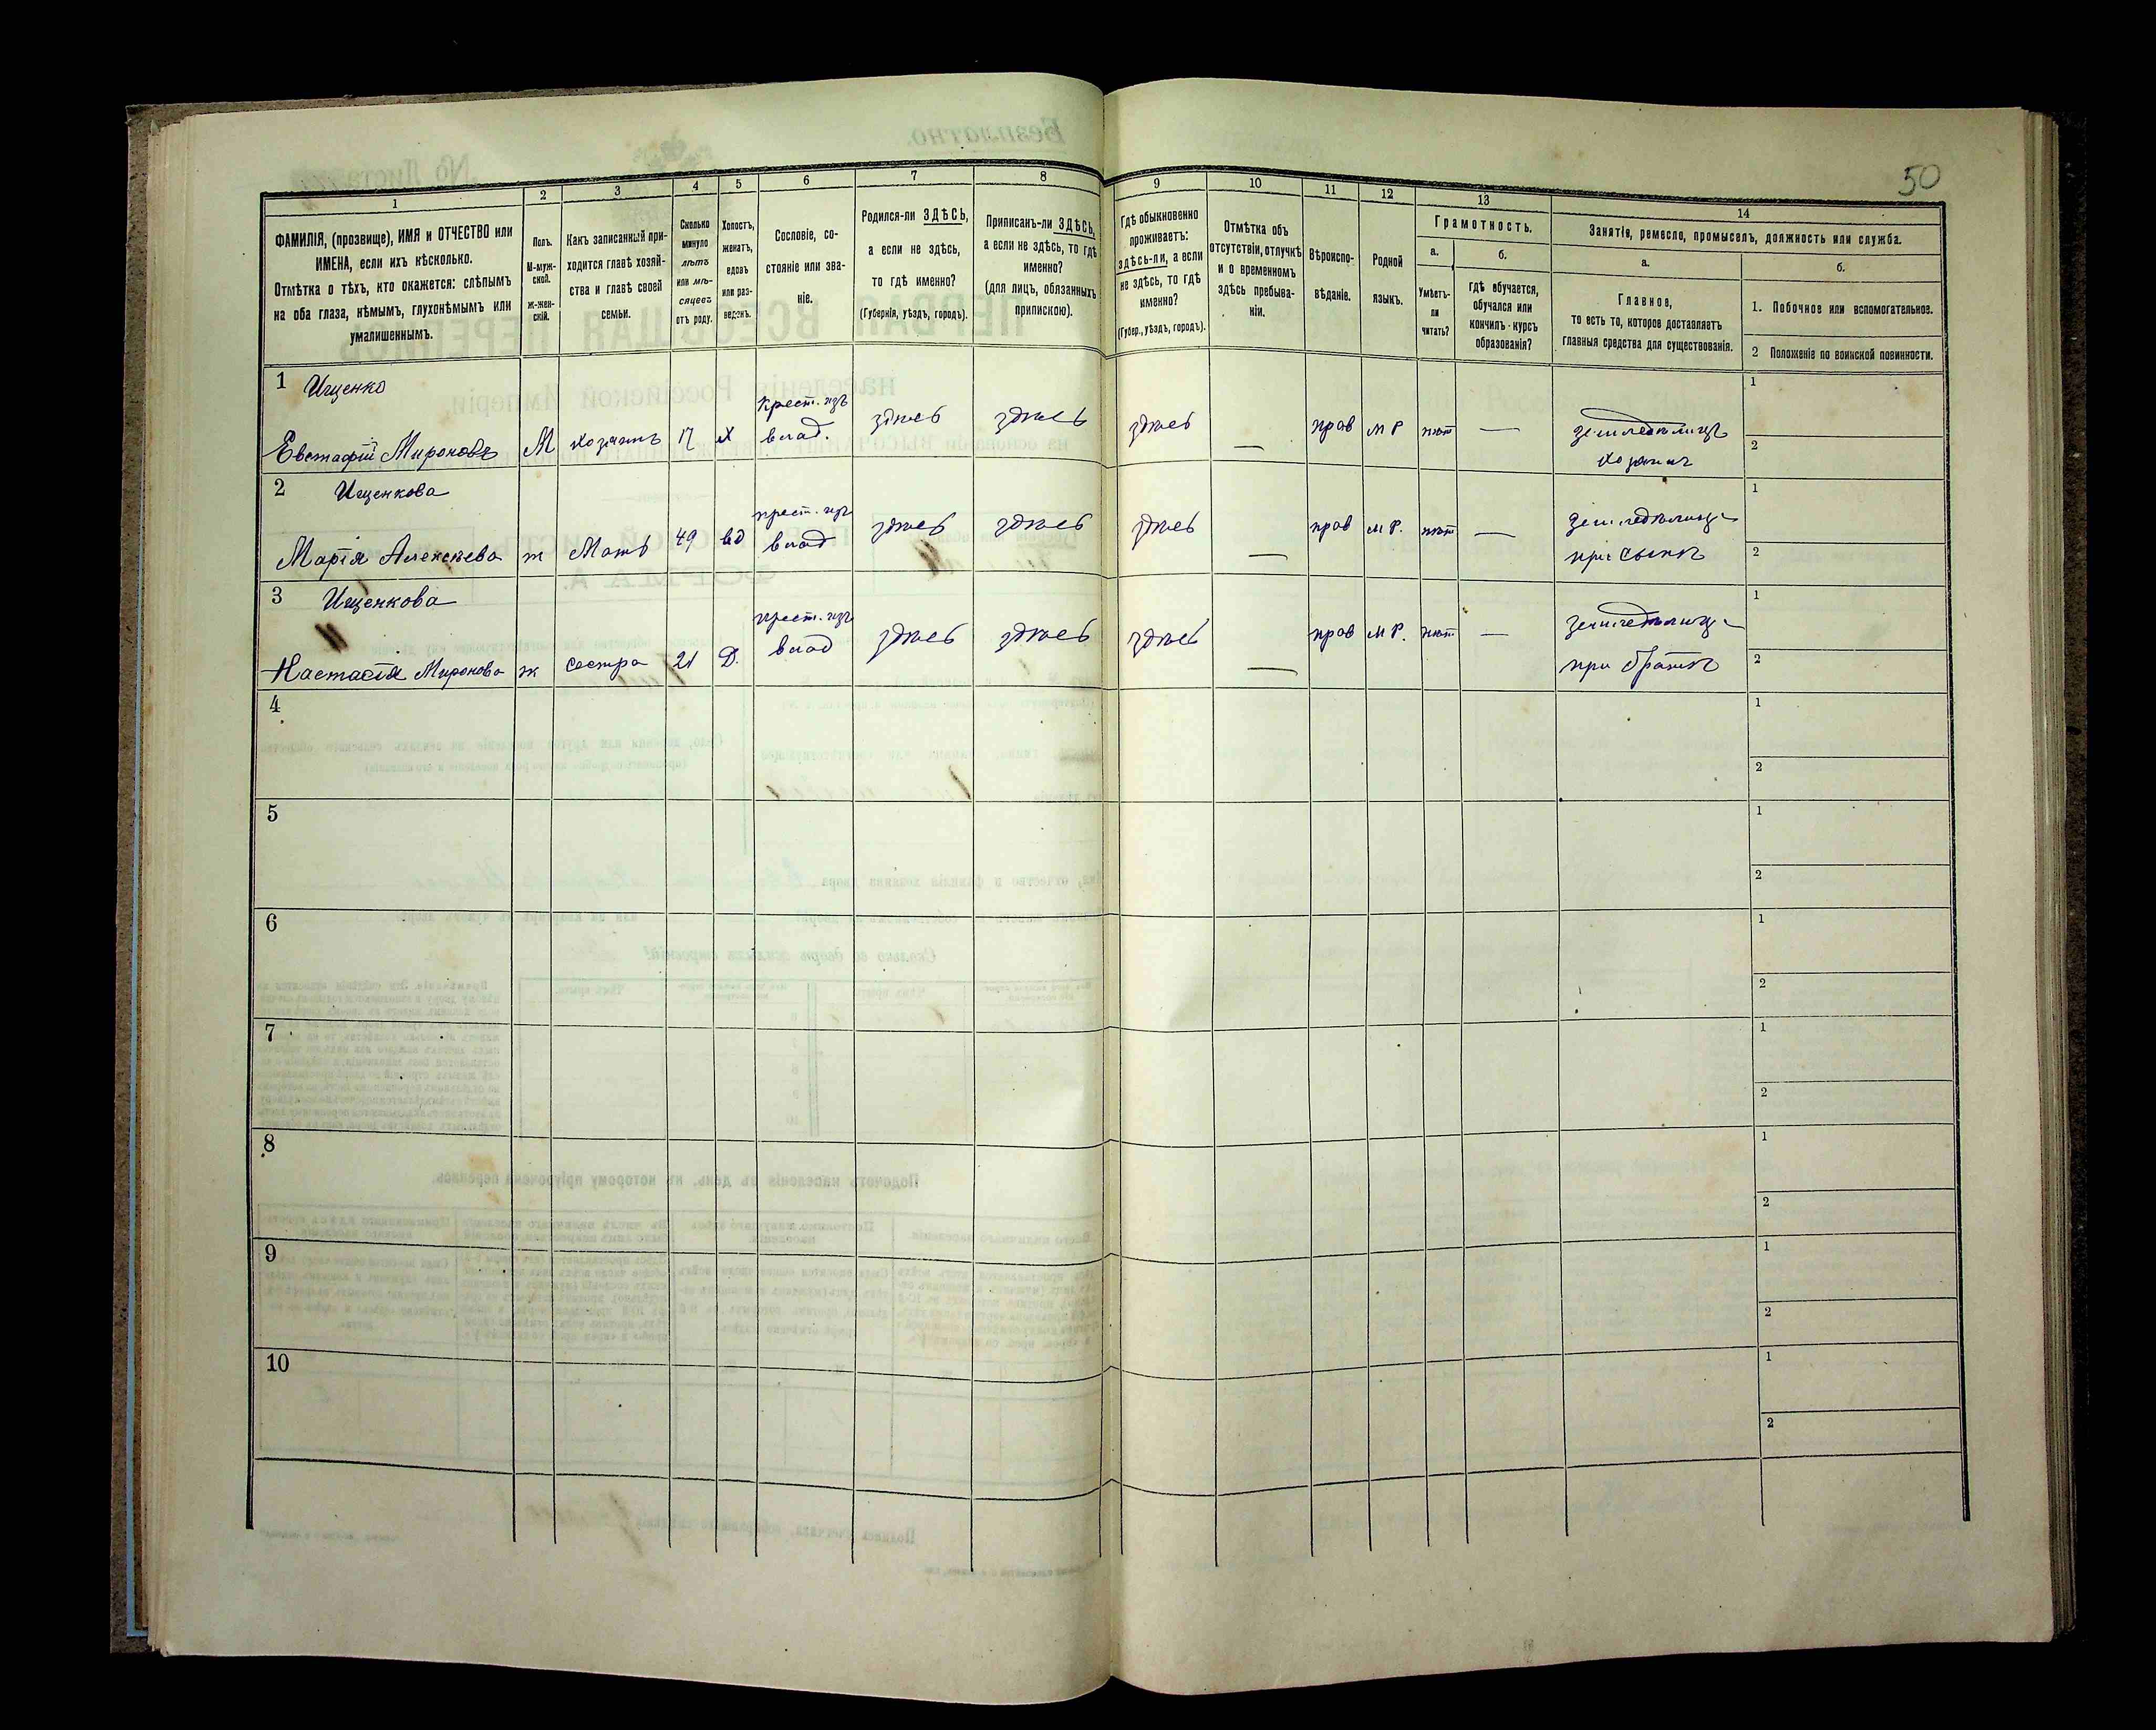 50
1
2
3
4
5
6
7
8
9
10
11
12
13
14
ФАМИЛІЯ, (прозвище), ИМЯ и ОТЧЕСТВО или
ИМЕНА, если ихъ нѣсколько.
Отмѣтка о тѣхъ, кто окажется: слѣпымъ
на оба глаза, нѣмымъ, глухонѣмымъ или
умалишеннымъ.
Полъ.
М-муж-
ской.
ж-жен-
скій.
Какъ записанный при-
ходится главѣ хозяй-
ства и главѣ своей
семьи.
Сколько
минуло
лѣтъ
или мѣ-
сяцевъ
отъ роду.
Холостъ,
женатъ,
вдовъ
или раз-
веденъ.
Сословіе, со-
стояніе или зва-
ніе.
Родился-ли ЗДѢСЬ,
а если не здѣсь,
то гдѣ именно?
(Губернія, уѣздъ, городъ).
Приписанъ-ли ЗДѢСЬ,
а если не здѣсь, то гдѣ
именно?
(для лицъ, обязанныхъ
припискою).
Гдѣ обыкновенно
проживаетъ:
здѣсь-ли, а если
не здѣсь, то гдѣ
именно?
(Губер., уѣздъ, городъ).
Отмѣтка объ
отсутствіи, отлучкѣ
и о временномъ
здѣсь пребыва-
ніи.
Вѣроиспо-
вѣданіе.
Родной
языкъ.
Грамотность.
а.
Умѣетъ-
ли
читать?
б.
гдѣ обучается,
обучался или
кончилъ курсъ
образованія?
Занятія, ремесло, промыселъ, должность или служба.
а.
Главное,
то есть то, которое доставляетъ
главныя средства для существованія.
б.
1. Побочное или вспомогательное.
2 Положеніе по воинской повинности.
1 Ищенко
Евстафій Мироновъ М хозяинъ 17 Х крест. изъ влад. здѣсь здѣсь здѣсь — прав М Р нѣт — земледѣлецъ хозяинъ
1
2
2 Ищенкова
Марія Алексѣева ж Мать 49 вд крест. изъ влад здѣсь здѣсь здѣсь — прав М Р. нѣт — земледѣлица при сынѣ
1
2
3 Ищенкова
Настасія Миронова ж сестра 21 Д. крест. изъ влад здѣсь здѣсь здѣсь — прав М Р. нѣт — земледѣлица при братѣ
1
2
4
1
2
5
1
2
6
1
2
7
1
2
8
1
2
9
1
2
10
1
2